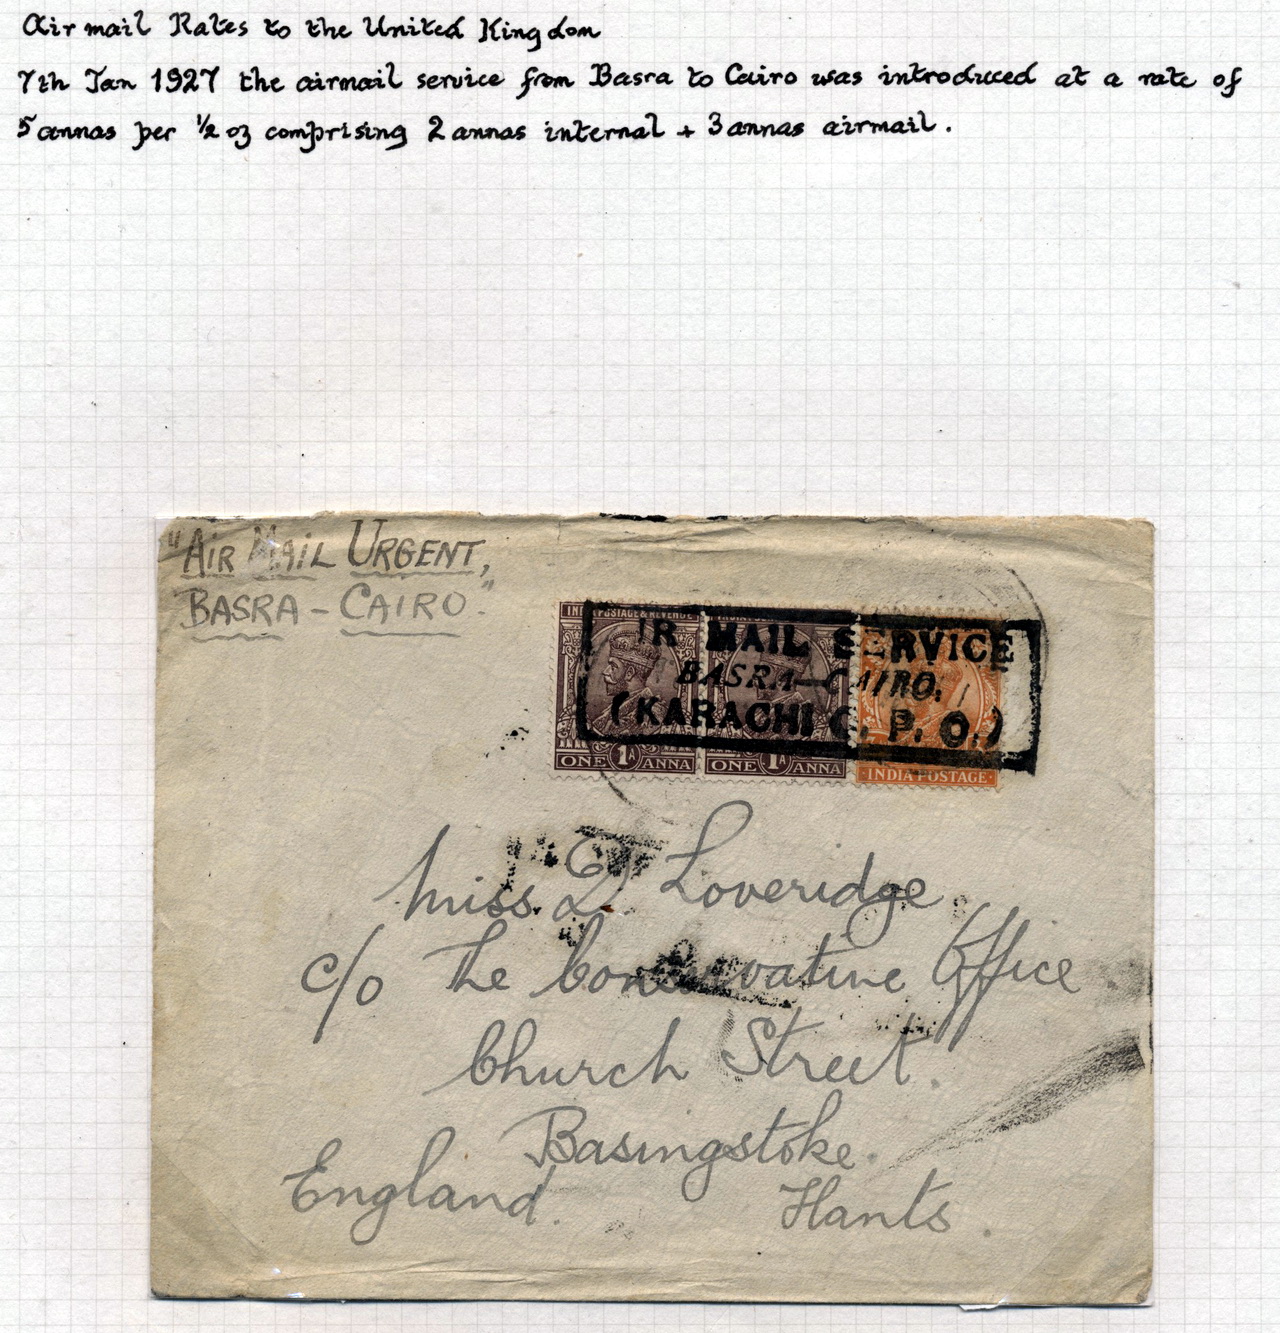 Air mail Rates to the United Kingdom
7th Jan 1927 the airmail service from Basra to Cairo was introduced at a rate of
5 annas per ½ oz comprising 2 annas internal + 3 annas airmail.
"AIR MAIL URGENT,
BASRA - CAIRO."
POSTAGE & REVENUE
IR MAIL SERVICE
BASRA—CAIRO.
(KARACHI G. P. O.)
ONE 1A ANNA ONE 1A ANNA INDIA POSTAGE
Miss D Loveridge
c/o The Conservative Office
Church Street.
Basingstoke.
England. Hants.